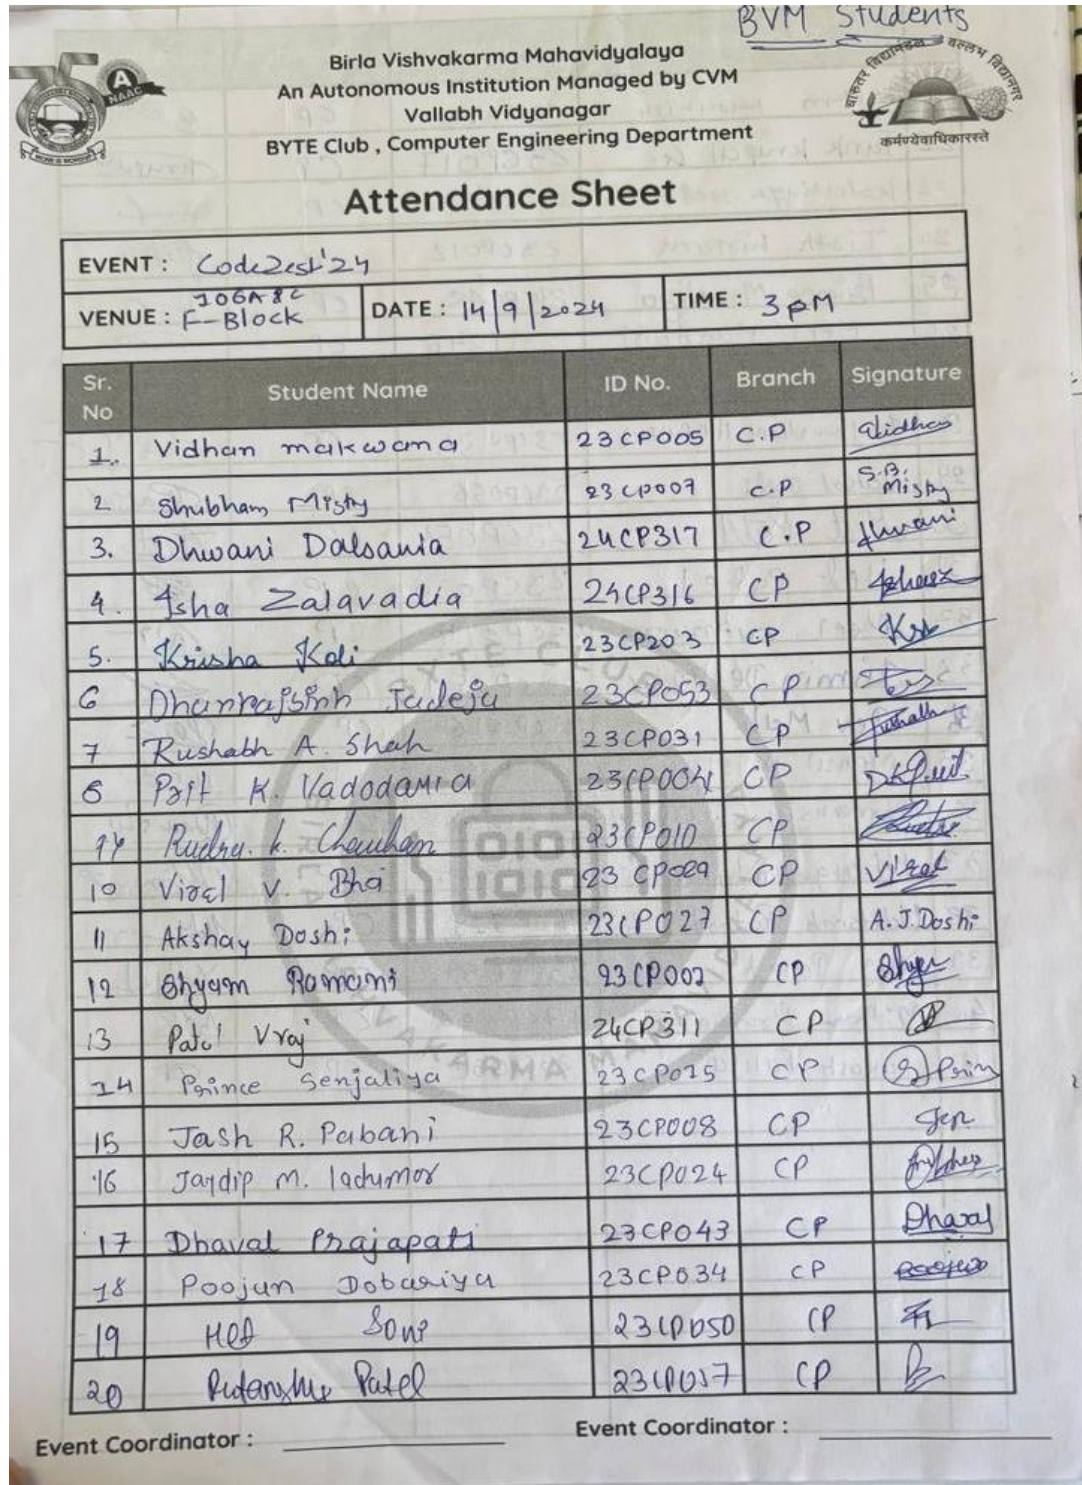 BVM Students
Birla Vishvakarma Mahavidyalaya
An Autonomous Institution Managed by CVM
Vallabh Vidyanagar
BYTE Club , Computer Engineering Department
A
NAAC
चारुतर विद्यामंडल वल्लभ विद्यानगर
कर्मण्येवाधिकारस्ते
Attendance Sheet
EVENT : CodeZest'24
VENUE : 106A & C F-Block DATE : 14/9/2024 TIME : 3 PM
Sr. No Student Name ID No. Branch Signature
1. Vidhan makwana 23CP005 C.P
2 Shubham Mistry 23CP007 C.P S.B. Mistry
3. Dhwani Dalsania 24CP317 C.P Dhwani
4. Isha Zalavadia 24CP316 CP
5. Krisha Koli 23CP203 CP
6 Dhanrajsinh Jadeja 23CP053 CP
7 Rushabh A. Shah 23CP031 CP
8 Prit K. Vadodaria 23CP004 CP
Rudra. k. Chauhan 23CP010 CP
10 Viral V. Bhoi 23 CP029 CP Viral
11 Akshay Doshi 23CP027 CP A.J.Doshi
12 Shyam Ramani 23CP002 CP Shyam
13 Patel Vraj 24CP311 CP
14 Prince Senjaliya 23CP025 CP
15 Jash R. Pabani 23CP008 CP
16 Jaydip M. ladumor 23CP024 CP
17 Dhaval Prajapati 23CP043 CP Dhaval
18 Poojan Dobariya 23CP034 CP
19 Het Soni 23CP050 CP
20 Patel CP
Event Coordinator : Event Coordinator :